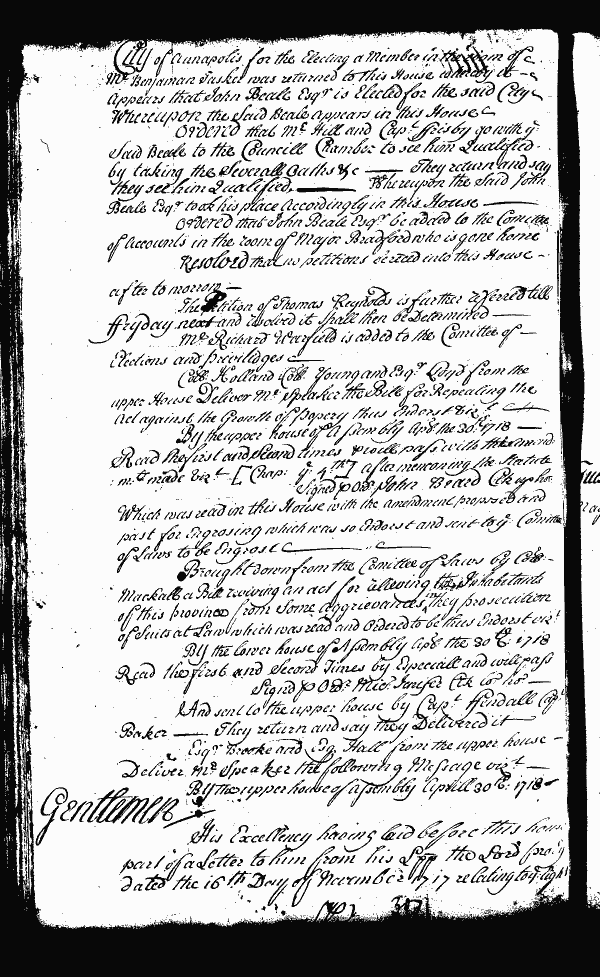 City of Annapolis for the Electing a Member in the room of
Mr. Benjamin Tasker was returned to this House whereby it
Appears that John Beale Esqr is Elected for the said City
Whereupon the Said Beale appears in this House
Ordered that Mr. Hill and Capt. Frisby go with ye
Said Beale to the Councill Chamber to see him Qualified
by taking the Severall Oaths &c — They return and say
they see him Qualified — Whereupon the Said John
Beale Esqr took his place Accordingly in this House —
Ordered that John Beale Esqr be added to the Comittee
of Accounts in the room of Major Bradford who is gone home
Resolved that no petitions be reced into this House
after to morrow —
The Petition of Thomas Reynolds is further referred till
ffryday next and resolved it shall then be Determined —
Mr. Richard Warfield is added to the Comittee of —
Elections and priviledges
Coll. Holland Coll. Young and Esqr Lloyd from the
upper House Deliver Mr. Speaker the Bill for Repealing the
Act against the Growth of Popery thus Endorst vizt
By the upper house of Assembly Apr. the 30th 1718 —
Read the first and Second times & will pass with the amend:
:mts made vizt [Chap: ye 4th] after mencioning the Statute
Signed p Ordr John Beard Clk up ho
Which was read in this House with the amendment proposed and
past for Engrosing which was so Endorst and sent to ye Comittee
of Laws to be Engrost
Brought down from the Comittee of Laws by Coll.
Mackall a Bill reviving an act for relieving the Inhabitants
of this province from some aggrievances in they prosecution
of Suits at Law which was read and Ordered to be thus Endorst vizt
By the lower house of Assembly Apr. the 30th: 1718
Read the first and Second Times by Especiall and will pass
Signd p Ordr Mic. Jenifer Clk lo: ho: —
And sent to the upper house by Capt. ffendall Capt
Baker — They return and say they Delivered it
Esqr Brooke and Esq. Hall from the upper house —
Deliver Mr. Speaker the following Message vizt —
By the upper house of assembly Aprill 30th: 1718
Gentlemen
His Excellency having laid before this house
part of a Letter to him from his Lpp the Lord pro:
dated the 16th Day of November 1717 relating to ye